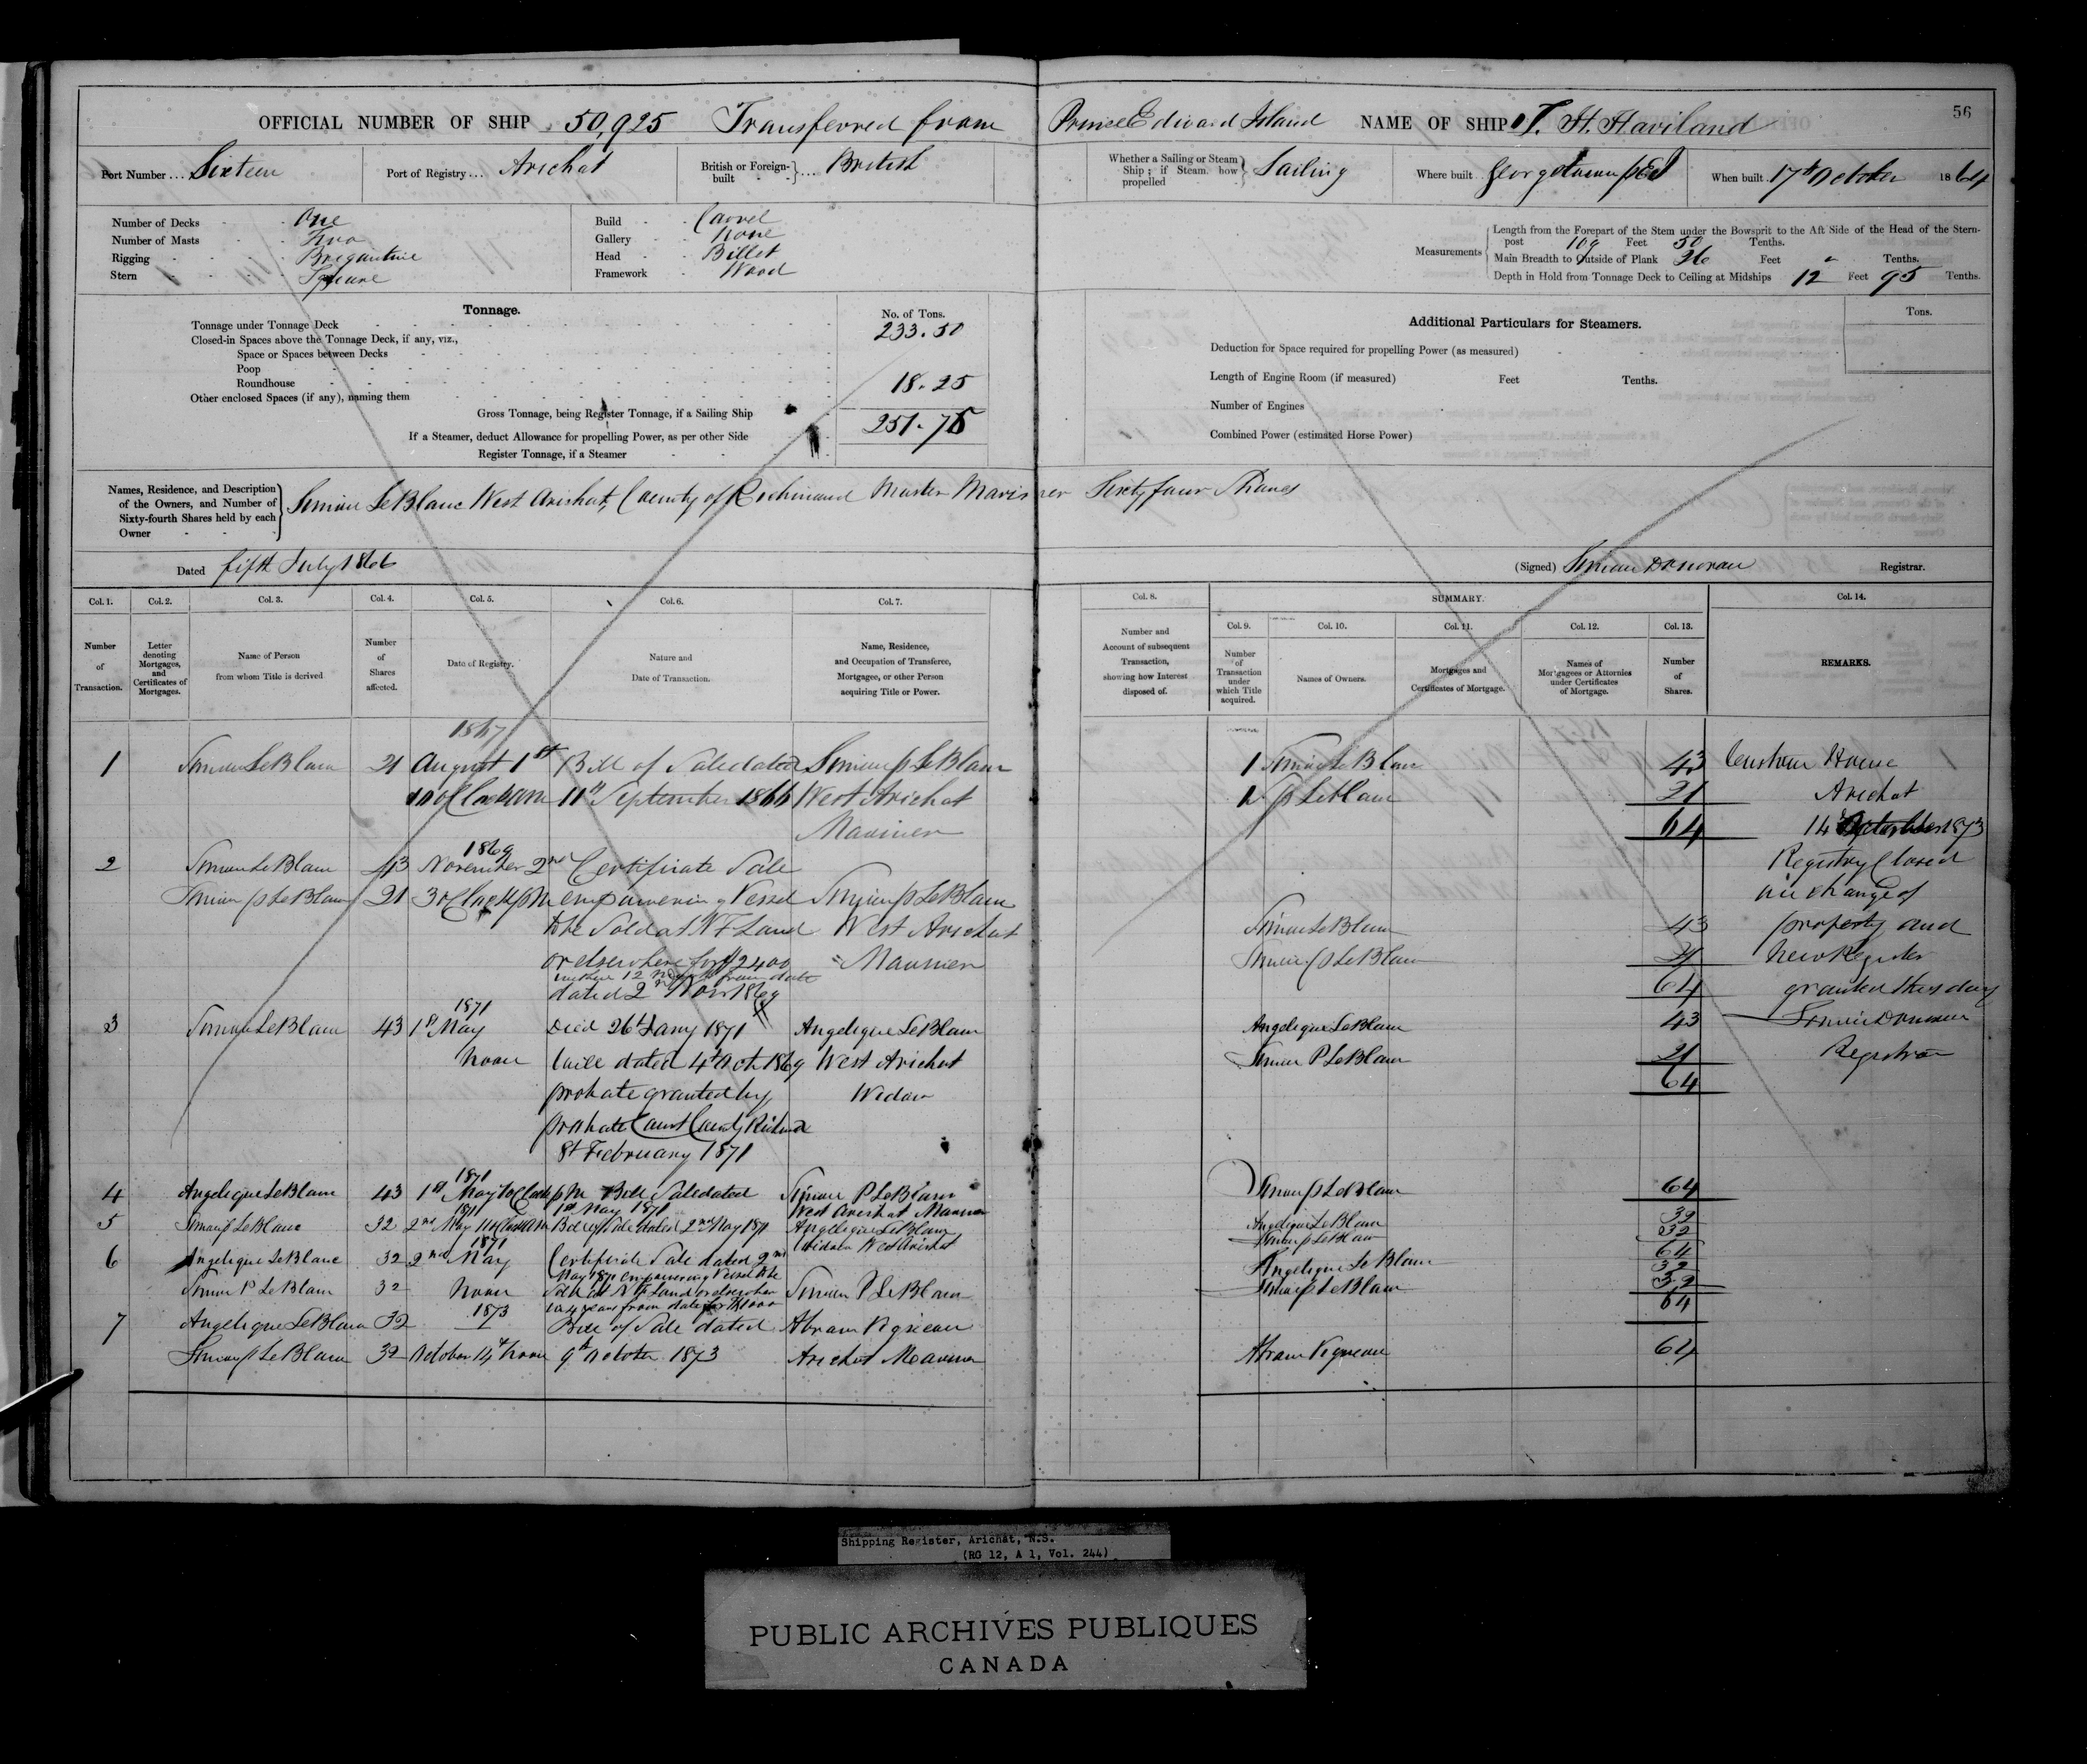 56
OFFICIAL NUMBER OF SHIP 50,925 Transferred from Prince Edward Island NAME OF SHIP T. H. Haviland
Port Number ... Sixteen Port of Registry ... Arichat British or Foreign-built ... British
Whether a Sailing or Steam Ship; if Steam how propelled Sailing Where built Georgetown PEI When built 17th October 1864
Number of Decks One
Number of Masts Two
Rigging Brigantine
Stern Square
Build Carvel
Gallery None
Head Billet
Framework Wood
Measurements
Length from the Forepart of the Stem under the Bowsprit to the Aft Side of the Head of the Stern-
post 109 Feet 50 Tenths.
Main Breadth to Outside of Plank 26 Feet " Tenths.
Depth in Hold from Tonnage Deck to Ceiling at Midships 12 Feet 95 Tenths.
Tonnage. No. of Tons.
Tonnage under Tonnage Deck 233.50
Closed-in Spaces above the Tonnage Deck, if any, viz.,
Space or Spaces between Decks
Poop
Roundhouse 18.25
Other enclosed Spaces (if any), naming them
Gross Tonnage, being Register Tonnage, if a Sailing Ship 251.75
If a Steamer, deduct Allowance for propelling Power, as per other Side
Register Tonnage, if a Steamer
Additional Particulars for Steamers. Tons.
Deduction for Space required for propelling Power (as measured)
Length of Engine Room (if measured) Feet Tenths.
Number of Engines
Combined Power (estimated Horse Power)
Names, Residence, and Description of the Owners, and Number of Sixty-fourth Shares held by each Owner
Simon LeBlanc West Arichat, County of Richmond Master Mariner Sixty four Shares
Dated fifth July 1866 (Signed) Simon Donovan Registrar.
Col. 1. Col. 2. Col. 3. Col. 4. Col. 5. Col. 6. Col. 7. Col. 8. SUMMARY. Col. 14.
Col. 9. Col. 10. Col. 11. Col. 12. Col. 13.
Number of Transaction.
Letter denoting Mortgages, and Certificates of Mortgages.
Name of Person from whom Title is derived
Number of Shares affected.
Date of Registry.
Nature and Date of Transaction.
Name, Residence, and Occupation of Transferee, Mortgagee, or other Person acquiring Title or Power.
Number and Account of subsequent Transaction, showing how Interest disposed of.
Number of Transaction under which Title acquired.
Names of Owners.
Mortgages and Certificates of Mortgage.
Names of Mortgagees or Attornies under Certificates of Mortgage.
Number of Shares.
REMARKS.
1867
1 Simon LeBlanc 21 August 1st Bill of Sale dated Simon P LeBlanc
10 oClock AM 11th September 1866 West Arichat
Mariner
1869
2 Simon LeBlanc 43 November 2nd Certificate Sale
Simon P LeBlanc 21 3 oClock PM empowering Vessel Simon P LeBlanc
to be Sold at N F Land West Arichat
or elsewhere for $2400 Mariner
within 12 months from date
dated 2nd Novr 1869
1871
3 Simon LeBlanc 43 1st May Died 26th Jany 1871 Angelique LeBlanc
Noon Will dated 4th Oct 1869 West Arichat
probate granted by Widow
probate Court County Richmond
8th February 1871
1871
4 Angelique LeBlanc 43 1st May 1 oClock PM Bill Sale dated Simon P LeBlanc
1st May 1871 West Arichat Mariner
1871
5 Simon P LeBlanc 32 2nd May 11 oClock AM Bill of Sale dated 2nd May 1871 Angelique LeBlanc
Widow West Arichat
1871
6 Angelique LeBlanc 32 2nd May Certificate Sale dated 2nd
May 1871 empowering Vessel to be
Simon P LeBlanc 32 Noon Sold at N F Land or elsewhere Simon P LeBlanc
1873
7 Angelique LeBlanc 32 Bill of Sale dated Abram Vigneau
Simon P LeBlanc 32 October 14th Noon 9th October 1873 Arichat Mariner
1 Simon LeBlanc 43
P LeBlanc 21
64
Simon LeBlanc 43
Simon P LeBlanc 21
64
Angelique LeBlanc 43
Simon P LeBlanc 21
64
Simon P LeBlanc 64
Angelique LeBlanc 32
Simon P LeBlanc 32
64
Angelique LeBlanc 32
Simon P LeBlanc 32
64
Abram Vigneau 64
Custom House
Arichat
14th October 1873
Registry Closed
on change of
property and
New Register
granted this day
Simon Donovan
Registrar
Shipping Register, Arichat, N.S.
(RG 12, A 1, Vol. 244)
PUBLIC ARCHIVES PUBLIQUES
CANADA